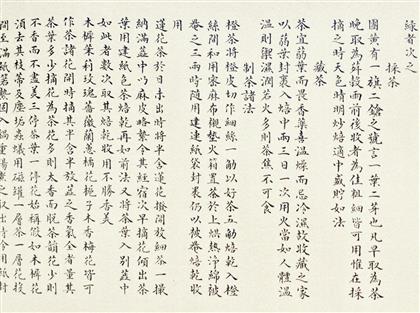 綠者次之
採茶
團黃有一旗二鎗之號言一葉二芽也凡早取為茶
晚取為荈穀雨前後收者為佳粗細皆可用惟在採
摘之時天色晴明炒焙適中盛貯如法
藏茶
茶宜蒻葉而畏香藥喜溫燥而忌冷濕故收藏之家
以蒻葉封裹入焙中兩三日一次用火當如人體溫
溫則禦濕潤若火多則茶焦不可食
制茶諸法
橙茶將橙皮切作細絲一觔以好茶五觔焙乾入橙
絲間和用密麻布襯墊火箱置茶於上烘熱淨綿被
罨之三兩時隨用建連紙袋封裹仍以被罨焙乾收
用
蓮花茶於日未出時將半含蓮花撥開放細茶一撮
納滿蕊中以麻皮略縶令其經宿次早摘花傾出茶
葉用建紙包茶焙乾再如前法又將茶葉入別蕊中
如此者數次取其焙乾收用不勝香美
木樨茉莉玫瑰薔薇蘭蕙橘花梔子木香梅花皆可
作茶諸花開時摘其半含半放蕊之香氣全者量其
茶葉多少摘花為茶花多則太香而脫茶韻花少則
不香而不盡美三停茶葉一停花始稱假如木樨花
須去其枝蒂及塵垢蟲蟻用磁罐一層茶一層花投
間至滿紙箬縶固入鍋重湯煮之取出待冷用紙封